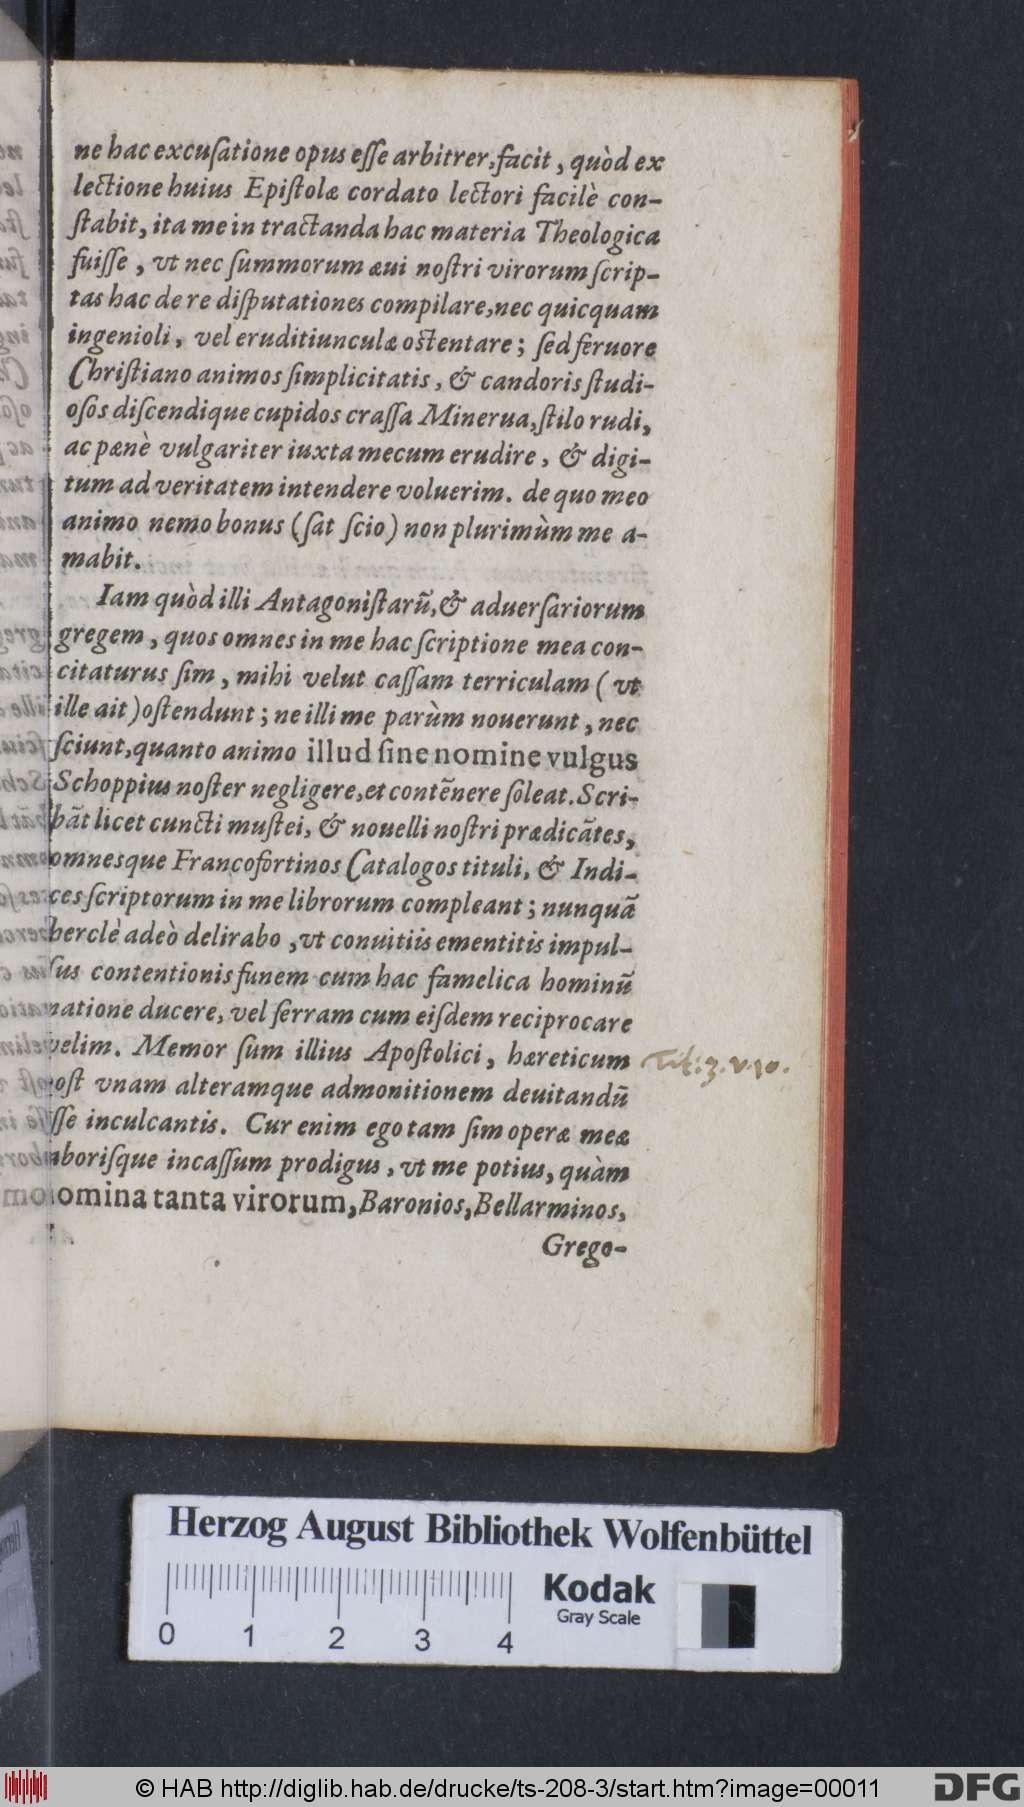 ne hac excuſatione opus eſſe arbitrer, facit, quòd ex
lectione huius Epiſtolæ cordato lectori facilè con-
ſtabit, ita me in tractanda hac materia Theologica
fuiſſe, vt nec ſummorum æui noſtri virorum ſcrip-
tas hac de re diſputationes compilare, nec quicquam
ingenioli, vel eruditiunculæ oſtentare; ſed feruore
Chriſtiano animos ſimplicitatis, & candoris ſtudi-
oſos diſcendique cupidos craſſa Minerua, ſtilo rudi,
ac pænè vulgariter iuxta mecum erudire, & digi-
tum ad veritatem intendere voluerim. de quo meo
animo nemo bonus (ſat ſcio) non plurimùm me a-
mabit.
Iam quòd illi Antagoniſtarũ, & aduerſariorum
gregem, quos omnes in me hac ſcriptione mea con-
citaturus ſim, mihi velut caſſam terriculam (vt
ille ait) oſtendunt; ne illi me parùm nouerunt, nec
ſciunt, quanto animo illud ſine nomine vulgus
Schoppius noſter negligere, et contẽnere ſoleat. Scri-
bãt licet cuncti muſtei, & nouelli noſtri prædicãtes,
omnesque Francofortinos Catalogos tituli, & Indi-
ces ſcriptorum in me librorum compleant; nunquã
herclè adeò delirabo, vt conuitiis ementitis impul-
ſus contentionis funem cum hac famelica hominũ
natione ducere, vel ſerram cum eiſdem reciprocare
velim. Memor ſum illius Apoſtolici, hæreticum
oſt vnam alteramque admonitionem deuitandũ
ſſe inculcantis. Cur enim ego tam ſim operæ meæ
boriſque incaſſum prodigus, vt me potius, quàm
omina tanta virorum, Baronios, Bellarminos,
Grego-
Tit: 3. v. 10.
Herzog August Bibliothek Wolfenbüttel
0 1 2 3 4
Kodak
Gray Scale
© HAB http://diglib.hab.de/drucke/ts-208-3/start.htm?image=00011
DFG